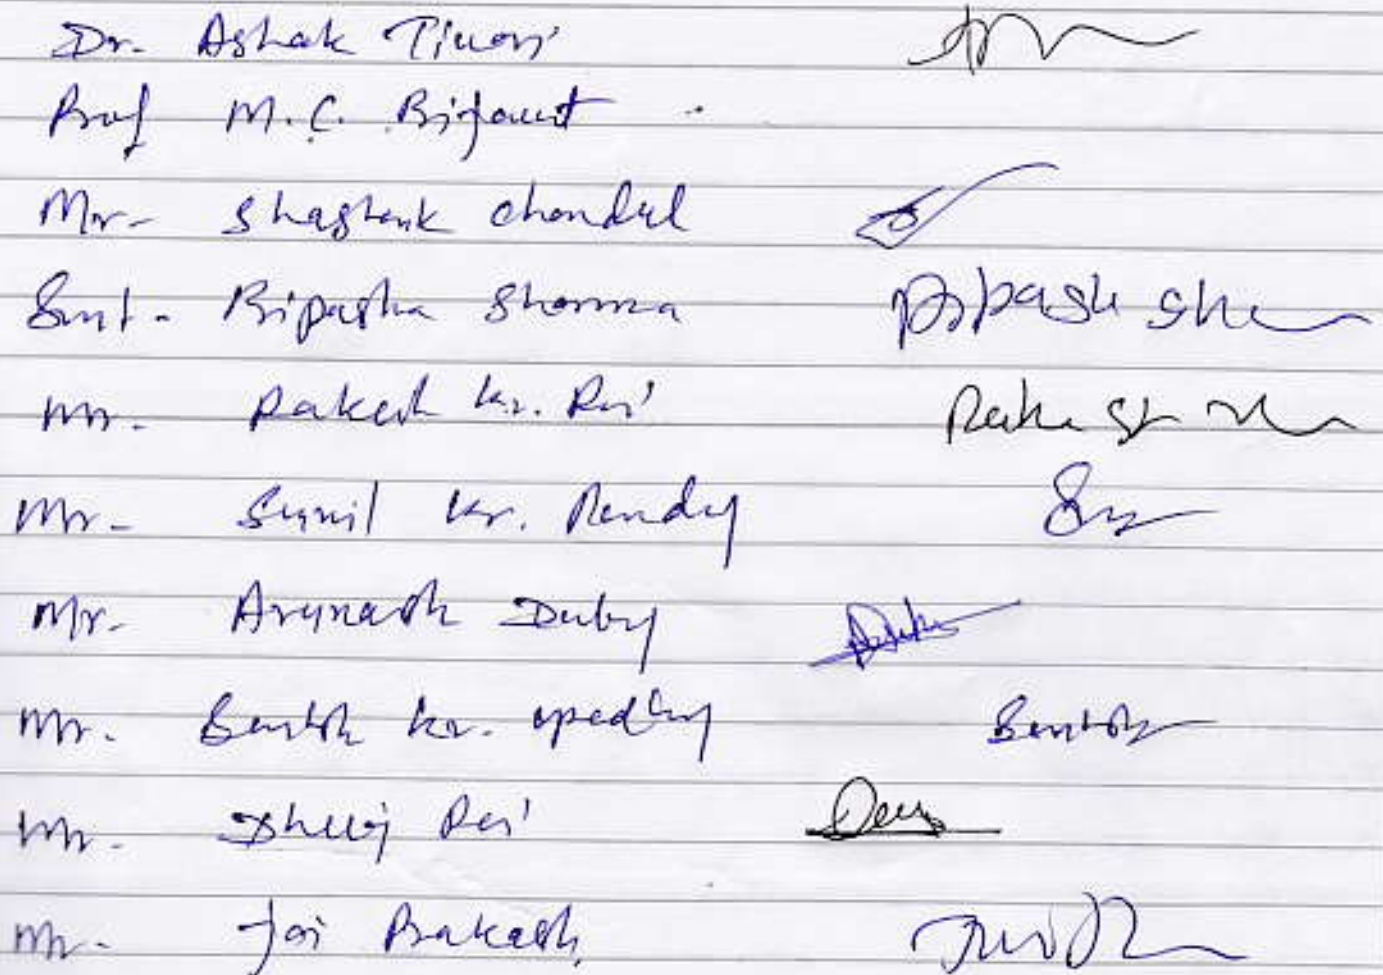 Dr. Ashok Tiwari
Prof M.C.
Mr. Shashank Chandel
Smt. Bipasha Sharma Bipasha Sha
Mr. Rakesh Kr. Rai Rakesh
Mr. Sunil Kr. Pandey
Mr. Avynash Dubey
Mr. Santosh Kr. Upadhyay Santosh
Mr. Dheeraj Rai
Mr. Jai Prakash